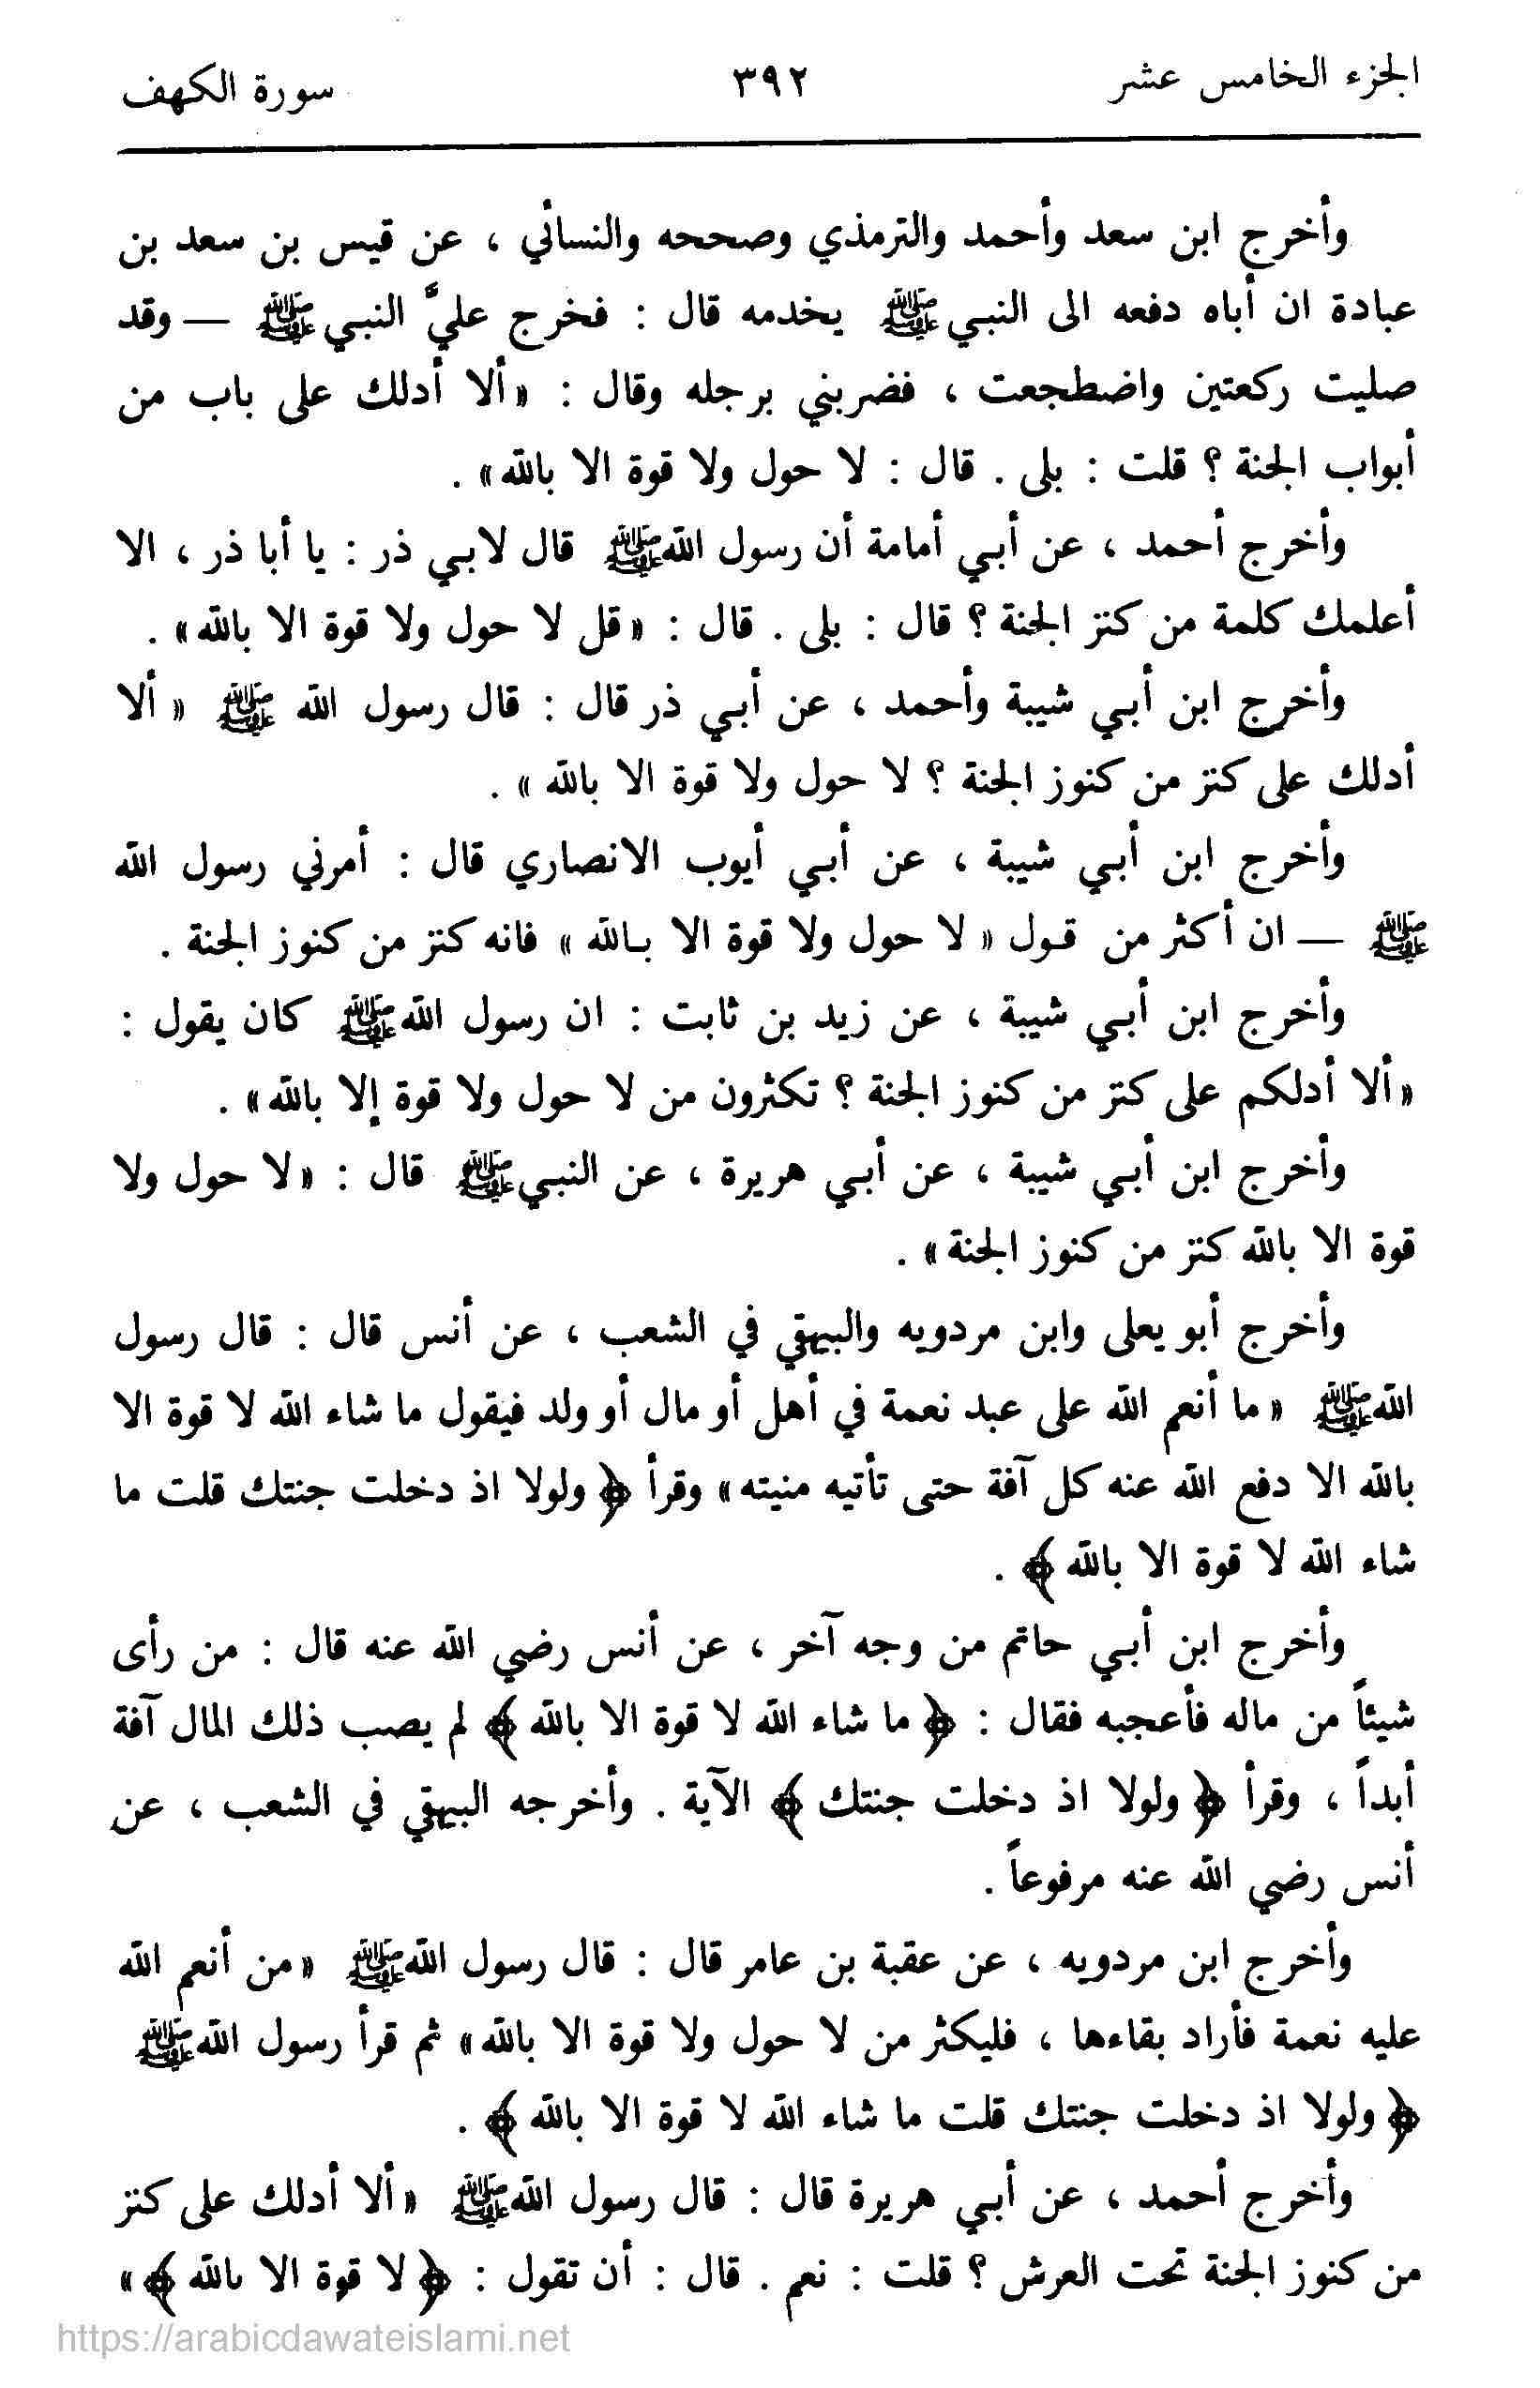 الجزء الخامس عشر ٣٩٢ سورة الكهف
وأخرج ابن سعد وأحمد والترمذي وصححه والنسائي ، عن قيس بن سعد بن
عبادة ان أباه دفعه الى النبي ﷺ يخدمه قال : فخرج عليَّ النبي ﷺ — وقد
صليت ركعتين واضطجعت ، فضربني برجله وقال : «ألا أدلك على باب من
أبواب الجنة ؟ قلت : بلى . قال : لا حول ولا قوة الا بالله» .
وأخرج أحمد ، عن أبي أمامة أن رسول الله ﷺ قال لابي ذر : يا أبا ذر ، الا
أعلمك كلمة من كنز الجنة ؟ قال : بلى . قال : «قل لا حول ولا قوة الا بالله» .
وأخرج ابن أبي شيبة وأحمد ، عن أبي ذر قال : قال رسول الله ﷺ « ألا
أدلك على كنز من كنوز الجنة ؟ لا حول ولا قوة الا بالله » .
وأخرج ابن أبي شيبة ، عن أبي أيوب الانصاري قال : أمرني رسول الله
ﷺ — ان أكثر من قول « لا حول ولا قوة الا بالله » فانه كنز من كنوز الجنة .
وأخرج ابن أبي شيبة ، عن زيد بن ثابت : ان رسول الله ﷺ كان يقول :
«ألا أدلكم على كنز من كنوز الجنة ؟ تكثرون من لا حول ولا قوة إلا بالله» .
وأخرج ابن أبي شيبة ، عن أبي هريرة ، عن النبي ﷺ قال : «لا حول ولا
قوة الا بالله كنز من كنوز الجنة» .
وأخرج أبو يعلى وابن مردويه والبيهقي في الشعب ، عن أنس قال : قال رسول
الله ﷺ « ما أنعم الله على عبد نعمة في أهل أو مال أو ولد فيقول ما شاء الله لا قوة الا
بالله الا دفع الله عنه كل آفة حتى تأتيه منيته» وقرأ ﴿ ولولا اذ دخلت جنتك قلت ما
شاء الله لا قوة الا بالله ﴾ .
وأخرج ابن أبي حاتم من وجه آخر ، عن أنس رضي الله عنه قال : من رأى
شيئاً من ماله فأعجبه فقال : ﴿ ما شاء الله لا قوة الا بالله ﴾ لم يصب ذلك المال آفة
أبداً ، وقرأ ﴿ ولولا اذ دخلت جنتك ﴾ الآية . وأخرجه البيهقي في الشعب ، عن
أنس رضي الله عنه مرفوعاً .
وأخرج ابن مردويه ، عن عقبة بن عامر قال : قال رسول الله ﷺ «من أنعم الله
عليه نعمة فأراد بقاءها ، فليكثر من لا حول ولا قوة الا بالله» ثم قرأ رسول الله ﷺ
﴿ ولولا اذ دخلت جنتك قلت ما شاء الله لا قوة الا بالله ﴾ .
وأخرج أحمد ، عن أبي هريرة قال : قال رسول الله ﷺ «ألا أدلك على كنز
من كنوز الجنة تحت العرش ؟ قلت : نعم . قال : أن تقول : ﴿ لا قوة الا بالله ﴾»
https://arabicdawateislami.net